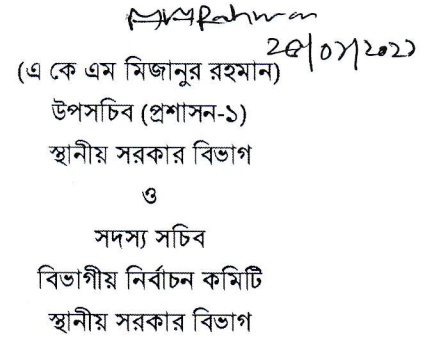 (এ কে এম মিজানুর রহমান)
উপসচিব (প্রশাসন-১)
স্থানীয় সরকার বিভাগ
ও
সদস্য সচিব
বিভাগীয় নির্বাচন কমিটি
স্থানীয় সরকার বিভাগ